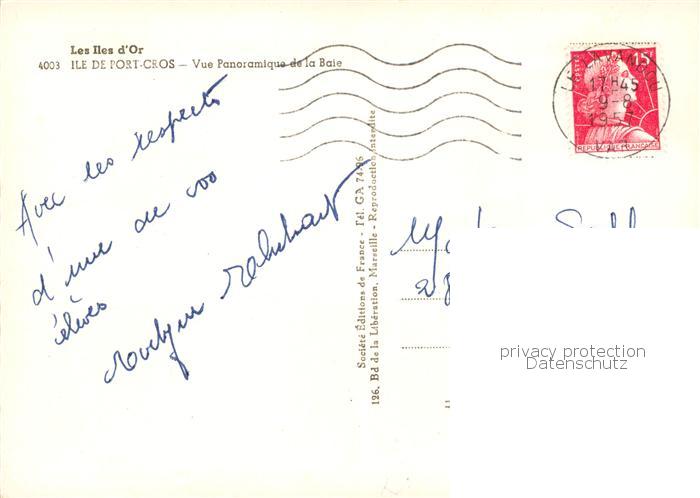 Les Iles d'Or
4003 ILE DE PORT-CROS — Vue Panoramique de la Baie
POSTES 15F
17H45
9-8
REPUBLIQUE FRANÇAISE
Avec les respects
d'une de vos
élèves
Evelyne
Société Éditions de France - Tél. GA 74-96
126, Bd de la Libération, Marseille - Reproduction interdite
privacy protection
Datenschutz